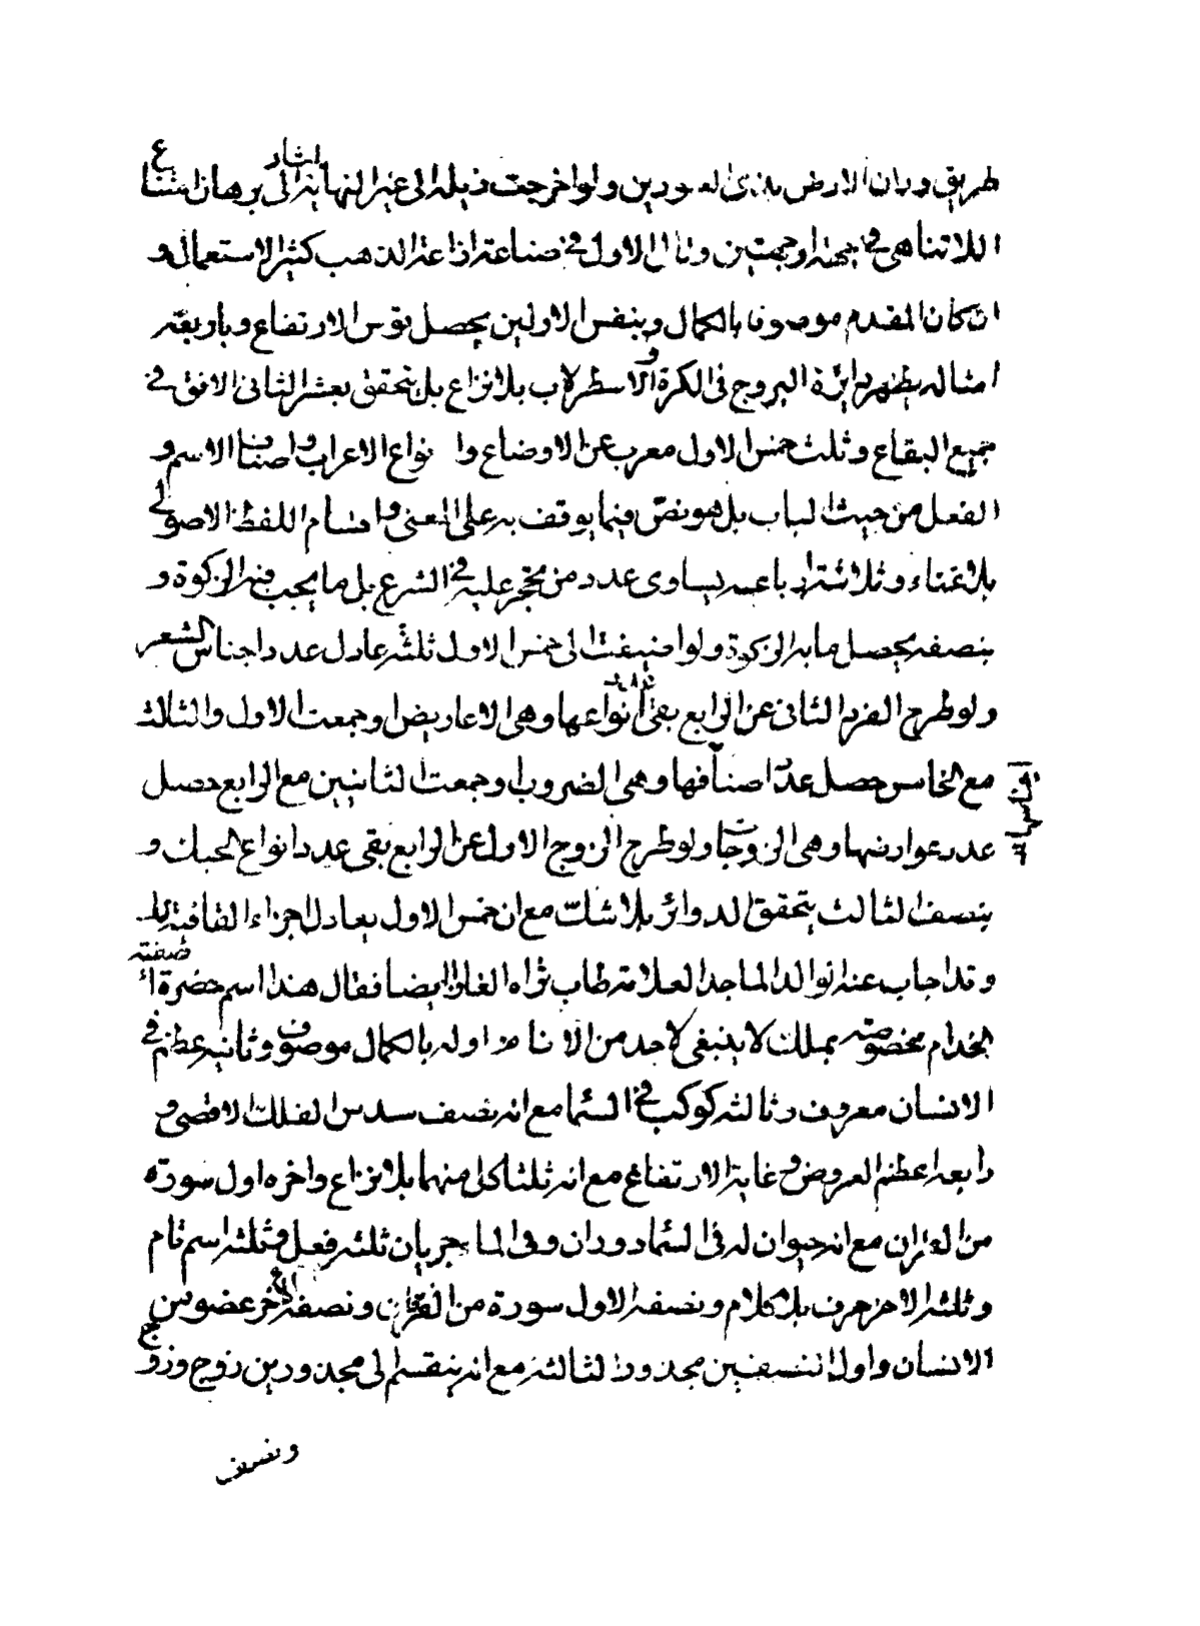 طريق وبان الارض بلدى لعودين ولو اخرجت ذيله الى غير النهاية اشار الى برهان امتناع
اللاتناهى فى جهة او جهتين وتالى الاول فى صناعة اذاعة الذهب كثير الاستعمال و
ان كان المقدم موصوفا بالكمال وبنفس الاولين يحصل قوس الارتفاع وباربعة
امثاله يظهر دايرة البروج فى الكرة والاسطرلاب بلا نزاع بل يتحقق بعشر الثانى الافق فى
جميع البقاع وثلث خمس الاول معرب عن الاوضاع وا نواع الاعراب واصناف الاسم و
الفعل من حيث الباب بل هو نص فيما يوقف به على المعنى واقسام اللفظ الاصولى
بلا غناء وثلاثة باعه يساوى عدد من يحجر عليه فى الشرع بل ما يجب فيه الزكوة و
بنصفه يحصل ما به الزكوة ولو اضيفت الى خمس الاول ثلثه عادل عدد اجناس الشعر
ولو طرح الفرد الثانى عن الرابع بقى انواعها وهى الاعاريض او جمعت الاول والثالث
مع الخامس حصل عدد اصنافها وهى الضروب او جمعت الثانيين مع الرابع حصل
عدد عوارضها وهى الزوجات ولو طرح الزوج الاول عن الرابع بقى عدد انواع الحبك و
بنصف الثالث يتحقق الدوائر بلا شك مع ان خمس الاول يعادل اجزاء القافية
وقد اجاب عنه الوالد الماجد العلامة طاب ثراه الغازا ايضا فقال هذا اسم حضرة صفته
الخدام مخصوصه بملك لا ينبغى لاحد من الانام اوله بالكمال موصوف وثانيه عظم فى
الانسان معروف وثالثه كوكب فى السما مع انه نصف سدس الفلك الاقصى و
رابعه اعظم العروض وغاية الارتفاع مع انه ثلثا كل منهما بلا نزاع واخره اول سورة
من القران مع انه حيوان له فى السما دوران وفى الما جريان ثلثه فعل وثلثه اسم تام
وثلثه الاخر حرف بلا كلام ونصفه الاول سورة من القران ونصفه الاخر عضو من
الانسان واول النصفين مجذور الثالثه مع انه ينقسم الى مجذورين زوج وزوج
ونصف